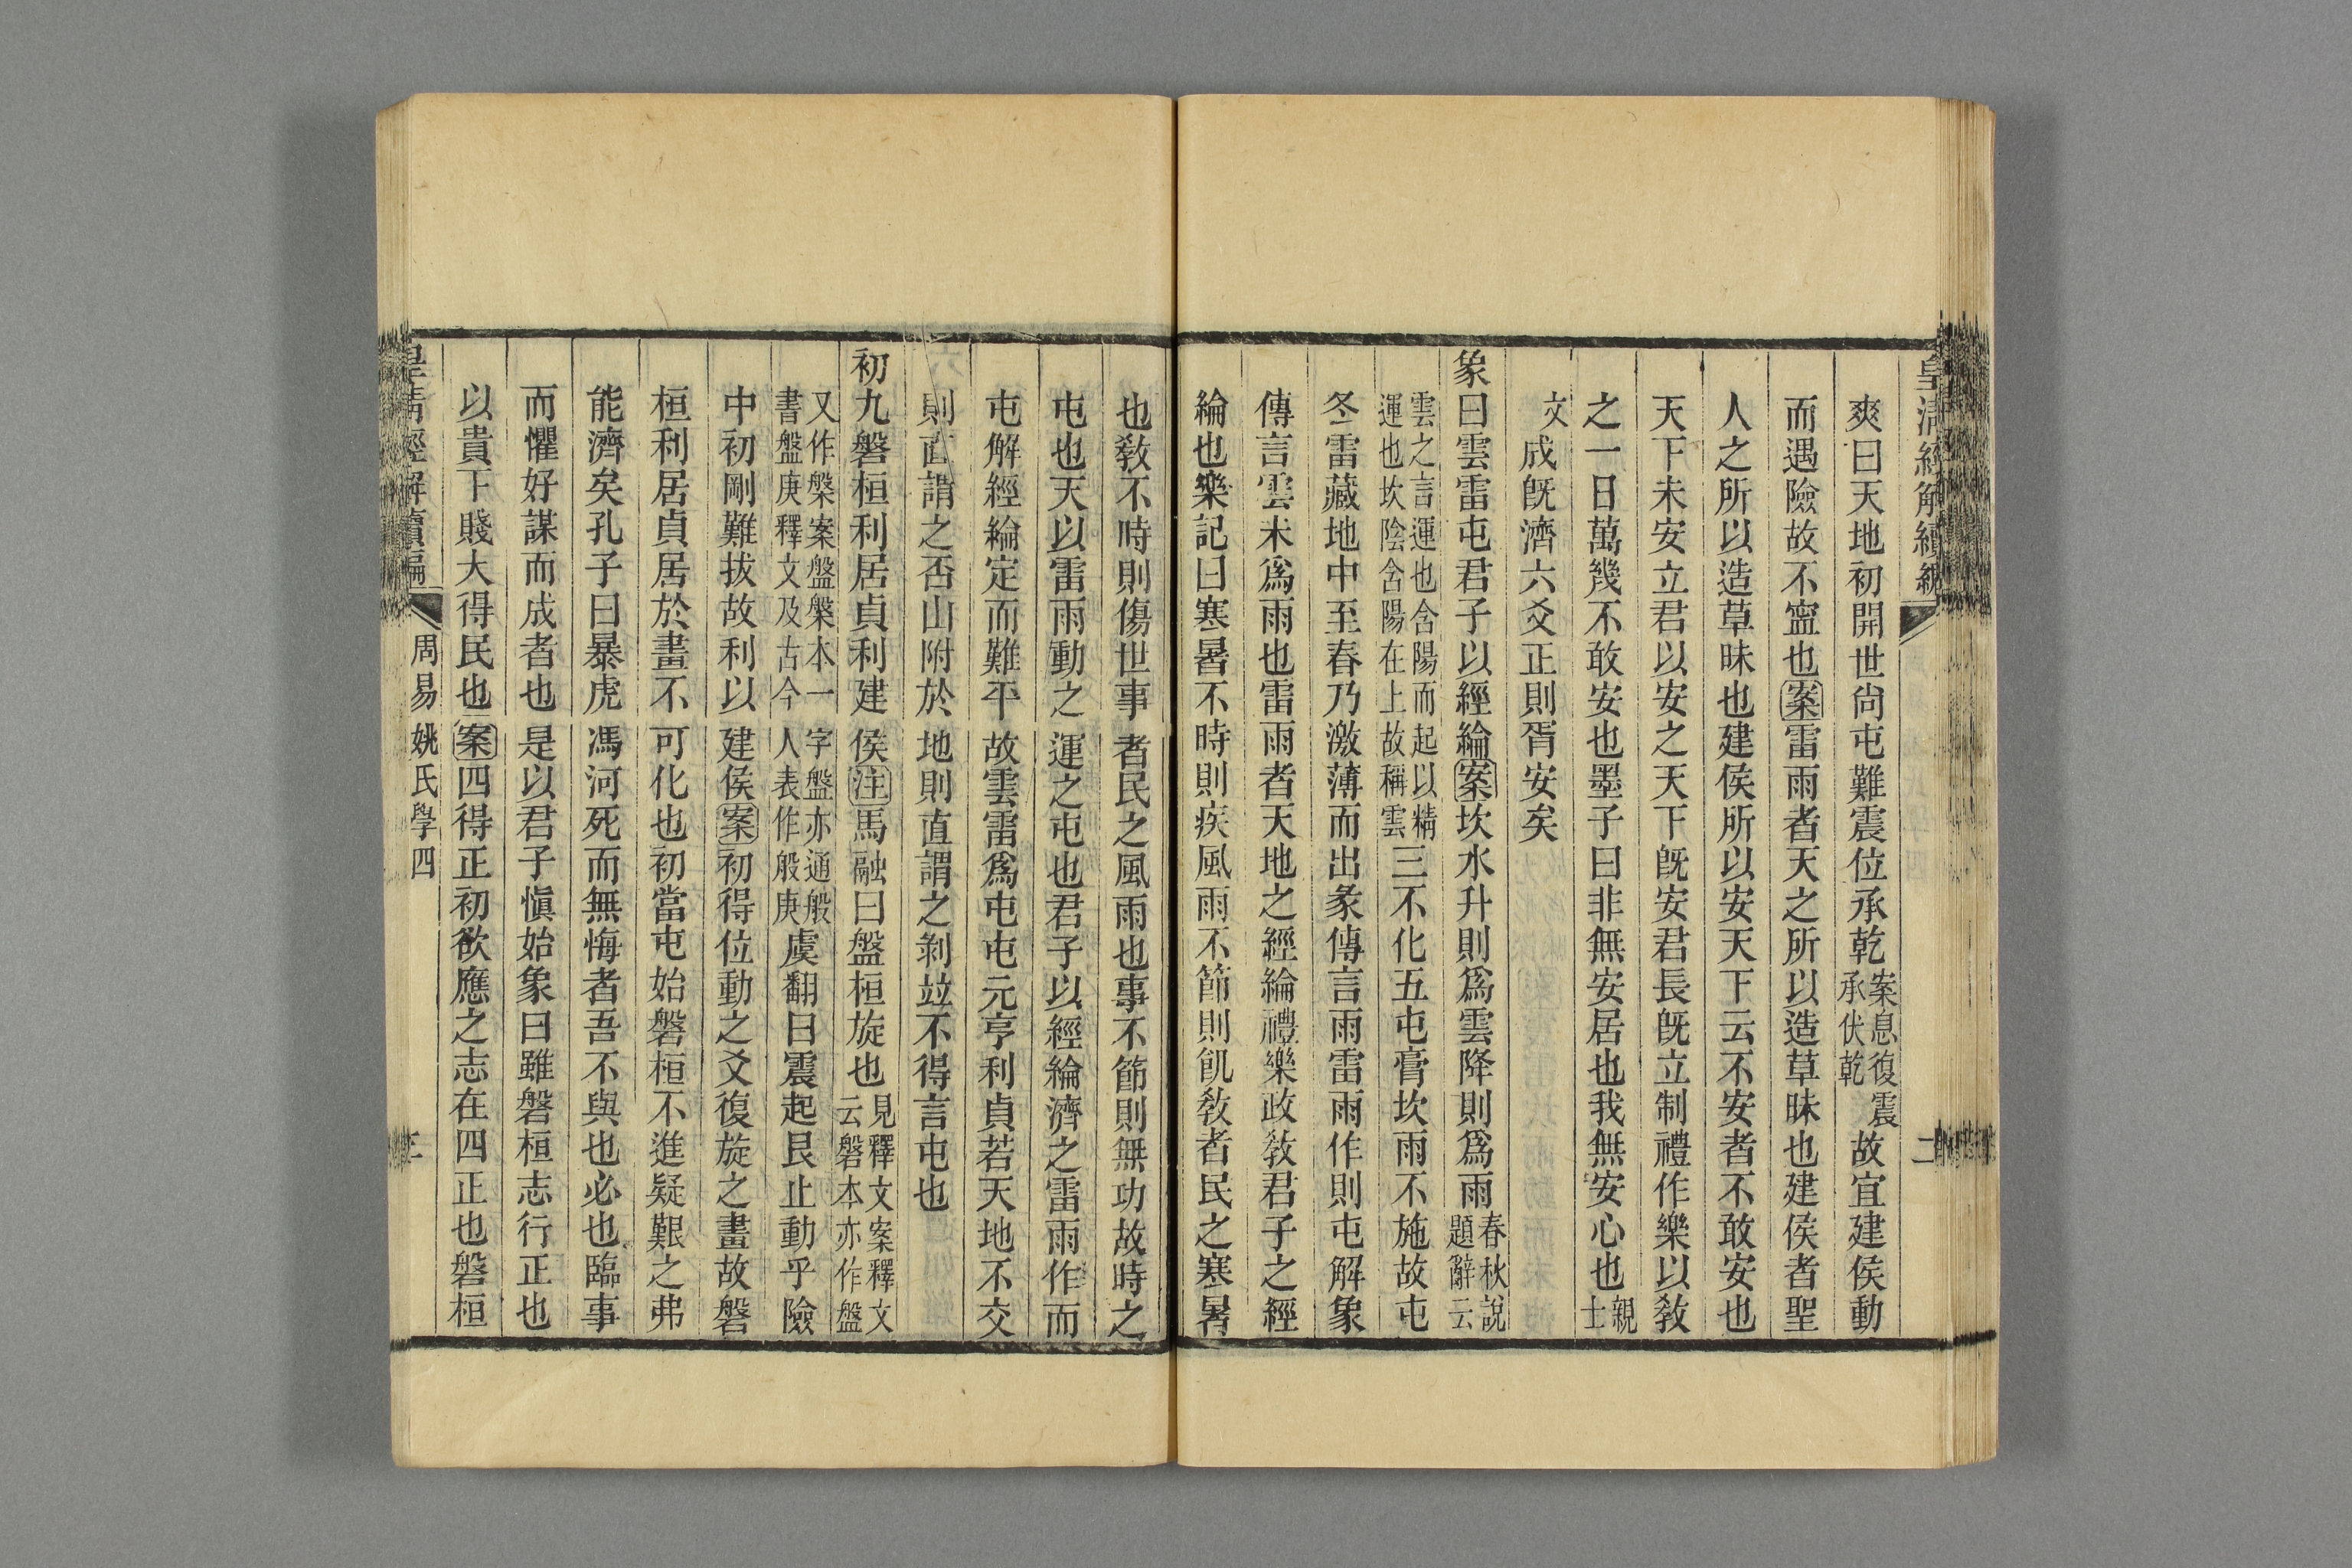 皇清經解續編
二
爽曰天地初開世尙屯難震位承乾案息復震承伏乾故宜建侯動
而遇險故不寍也案雷雨者天之所以造草昧也建侯者聖
人之所以造草昧也建侯所以安天下云不安者不敢安也
天下未安立君以安之天下旣安君長旣立制禮作樂以敎
之一日萬幾不敢安也墨子曰非無安居也我無安心也親士
文成旣濟六爻正則胥安矣
象曰雲雷屯君子以經綸案坎水升則爲雲降則爲雨春秋說題辭云
雲之言運也含陽而起以精運也坎陰含陽在上故稱雲三不化五屯膏坎雨不施故屯
冬雷藏地中至春乃激薄而出彖傳言雨雷雨作則屯解象
傳言雲未爲雨也雷雨者天地之經綸禮樂政敎君子之經
綸也樂記曰寒暑不時則疾風雨不節則飢敎者民之寒暑
也敎不時則傷世事者民之風雨也事不節則無功故時之
屯也天以雷雨動之運之屯也君子以經綸濟之雷雨作而
屯解經綸定而難平故雲雷爲屯屯元亨利貞若天地不交
則直謂之否山附於地則直謂之剝竝不得言屯也
初九磐桓利居貞利建侯注馬融曰盤桓旋也見釋文案釋文云磐本亦作盤
又作槃案盤槃本一字盤亦通般書盤庚釋文及古今人表作般庚虞翻曰震起艮止動乎險
中初剛難拔故利以建侯案初得位動之爻復旋之畫故磐
桓利居貞居於畫不可化也初當屯始磐桓不進疑艱之弗
能濟矣孔子曰暴虎馮河死而無悔者吾不與也必也臨事
而懼好謀而成者也是以君子愼始象曰雖磐桓志行正也
以貴下賤大得民也案四得正初欲應之志在四正也磐桓
皇淸經解續編
周易姚氏學四
三